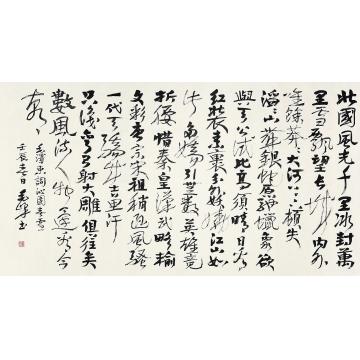 北國風光千里冰封萬
里雪飄望長城內外
惟餘莽々大河上下頓失
滔々山舞銀蛇原馳蠟象欲
與天公試比高須晴日看
紅裝素裹分外妖嬈江山如
此多嬌引無數英雄競
折腰惜秦皇漢武略輸
文彩唐宗宋祖稍遜風騷
一代天驕成吉思汗
只識彎弓射大雕俱往矣
數風流人物還看今
朝
毛澤東詞沁園春雪
壬辰